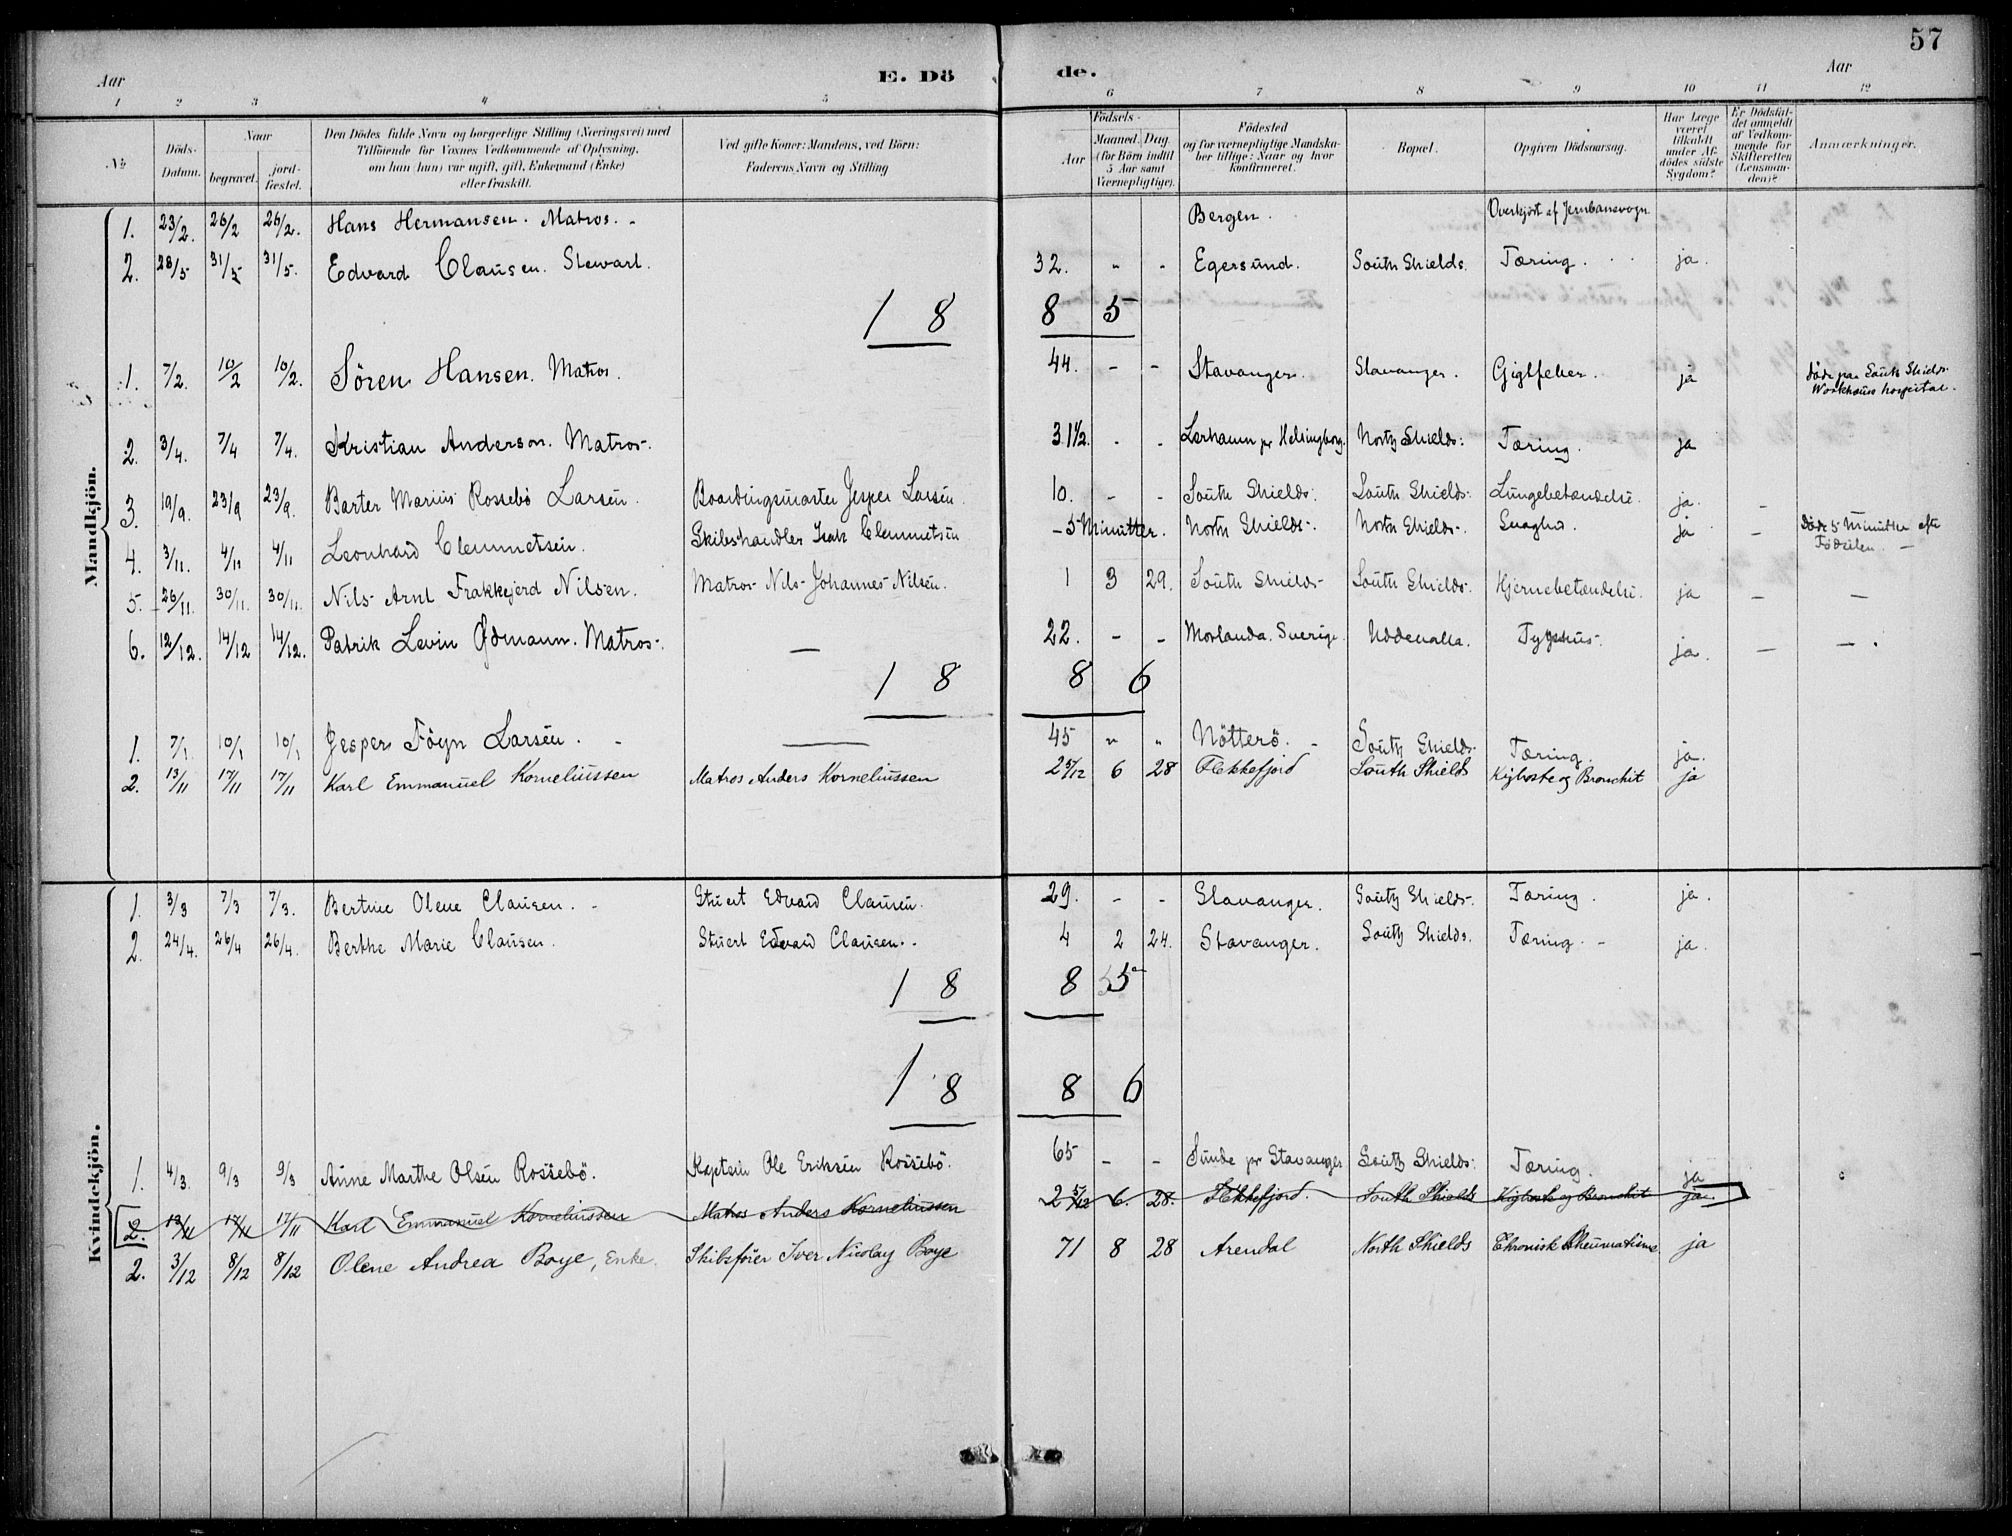 57
Aar E. Dö de. Aar
1 2 3 4 5 6 7 8 9 10 11 12
№
Döds-Datum.
Naar
begravet. jord-fæstet.
Den Dödes fulde Navn og borgerlige Stilling (Næringsvei) med
Tilföiende for Voxnes Vedkommende af Oplysning,
om han (hun) var ugift, gift, Enkemand (Enke)
eller fraskilt.
Ved gifte Koner: Mandens, ved Börn:
Faderens Navn og Stilling
Födsels-
Aar Maaned. Dag.
(for Börn indtil
5 Aar samt
Værnepligtige).
Födested
og for værnepligtige Mandska-
ber tillige: Naar og hvor
konfirmeret.
Bopæl.
Opgiven Dödsaarsag.
Har Læge
været
tilkaldt
under Af-
dödes sidste
Sygdom?
Er Dödsfal-
det anmeldt
af Vedkom-
mende for
Skifteretten
(Lensman-
den)?
Anmærkninger.
Mandkjön.
1. 23/2. 26/2 26/2. Hans Hermansen. Matros. - Bergen. Overkjört af Jernbanevogn.
2. 28/5 31/5 31/5. Edvard Clausen. Stewart. 32. " - Egersund. South Shields. Tæring. ja.
1 8 8 5
1. 7/2. 10/2 10/2. Sören Hansen. Matros. 44. - - Stavanger. Stavanger. Gigtfeber. ja döde paa South Shields
Workhous hospital.
2. 3/4. 7/4 7/4. Kristian Anderson. Matros-. 31½. - - Lerhamn pr Helsingborg. North Shields: Tæring. ja
3. 19/9. 23/9 23/9. Barter Marius Rossebö Larsen. Boardingmaster Jesper Larsen. 10. - - South Shields: South Shields: Lungebetændelse. ja. -
4. 3/11. 4/11 4/11 Leonhard Clemmetsen. Skibshandler Isak Clemmetsen - 5 Minutter. North Shields-. North Shields-. Svaghed. ja - Döde 5 Minutter efte
Födselen. -
5. 26/11. 30/11. 30/11. Nils Arnt Frakkfjerd Nilsen. Matros Nils Johannes Nilsen. 1 3 29. South Shields- South Shields-. Hjernebetændelse. ja - -
6. 12/12. 14/12 14/12. Patrik Levin Ödmann. Matros-. - 22. - - Morlanda. Sverige. Uddevalla. Typhus-. ja. - - .
1 8 8 6
1. 7/1. 10/1 10/1 Jesper Föyn Larsen. - — 45 " " Nötterö. - South Shields- Tæring. ja.
2. 13/11 17/11 17/11 Karl Emmanuel Korneliussen Matros Anders Korneliussen 2 5/12 6 28 Flekkefjord South Shields Kighoste og Bronchit ja
Kvindekjön.
1. 3/3 7/3 7/3. Bertine Olene Clausen. - Stuert Edvard Clausen. 29. - - Stavanger. South Shields-. Tæring. ja.
2. 24/4. 26/4 26/4. Berthe Marie Clausen. Stuert Edvard Clausen.. 4 2 24. Stavanger. South Shields. Tæring. - ja.
1 8 8 5
1 8 8 6
1. 4/3. 9/3 9/3 Anne Marthe Olsen Rossebö. Kaptein Ole Eriksen Rossebö. 65 - - Sunde pr Stavanger South Shields: Tæring. ja
2. 13/11 17/11 17/11 Karl Emmanuel Korneliussen Matros Anders Korneliussen 2 5/12 6. 28. Flekkefjord. South Shields Kighoste og Bronchit ja
2. 3/12 8/12 8/12 Olene Andrea Boye, Enke. Skibsförer Iver Nicolay Boye 71 8 28 Arendal North Shields Chronisk Rheumatisme ja